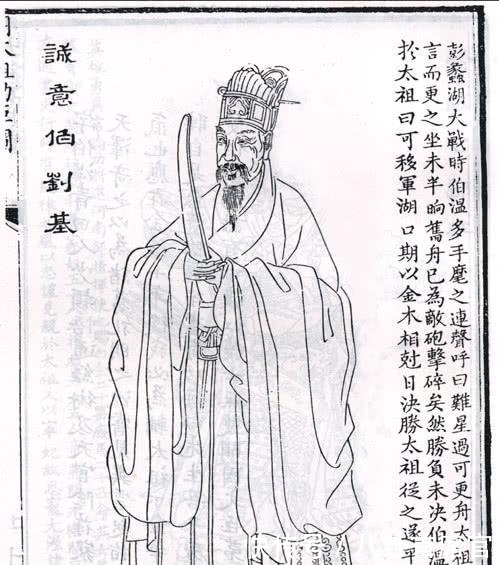 彭蠡湖大戰時伯溫多手麾之連聲呼曰難星過可更舟太祖
言而更之坐未半晌舊舟已為敵砲擊碎矣然勝負未决伯溫
扵太祖曰可移軍湖口期以金木相尅日决勝太祖從之遂平
誠意伯劉基